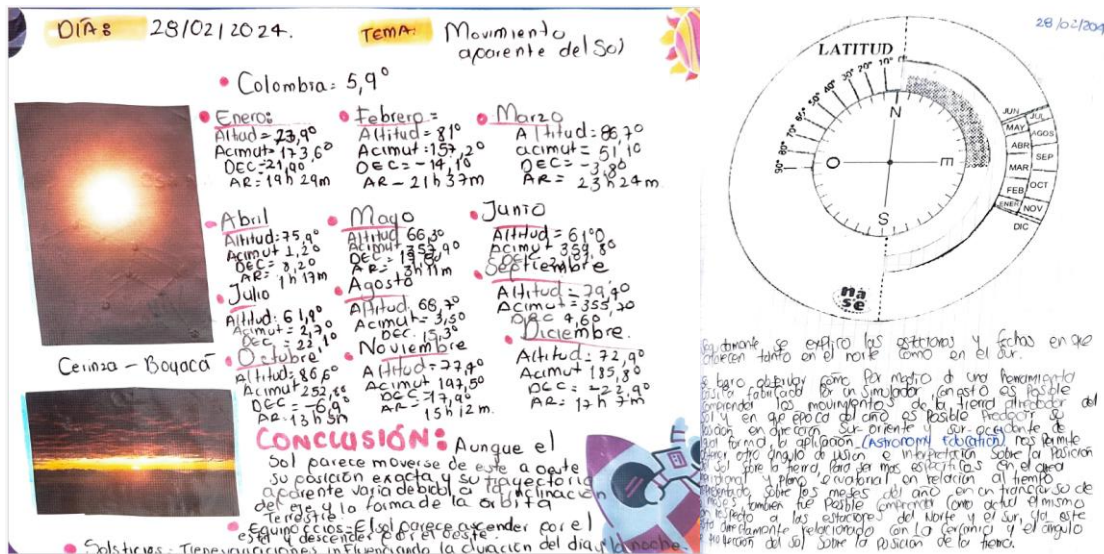 DÍA: 28/02/2024.
TEMA: Movimiento
aparente del Sol
Colombia = 5,9°
Enero:
Altud = 23,9°
Acimut = 173,6°
DEC = 21,9°
AR = 19h 29m
Febrero =
Altitud = 81°
Acimut = 157,2°
DEC = -14,1°
AR - 21h 37m
Marzo
Altitud = 86,7°
acimut = 51,1°
DEC = -3,8°
AR = 23h 24m
Abril
Altitud = 75,9°
Acimut 1,2°
DEC = 8,2°
AR = 1h 17m
Mayo
Altitud 66,3°
Acimut 353,9°
DEC =
AR = 3h 11m
Junio
Altitud = 61°0
Acimut = 359,8°
Julio
Altitud: 61,8°
Acimut = 2,7°
DEC = 22,1°
Agosto
Altitud: 66,7°
Acimut = 3,5°
DEC. 15,3°
Septiembre
Altitud = 79,4°
Acimut = 355,7°
DEC 4,6°
Octubre
Altitud: 86,6°
Acimut 252,
DEC = -6,9°
AR: 13h 5m
Noviembre
Altitud = 77,4°
Acimut 197,5°
DEC = -17,9°
AR = 15h 12m.
Diciembre.
Altitud: 72,9°
Acimut 185,8°
DEC = -22,9°
AR = 17h 7m
Cerinza - Boyacá
CONCLUSIÓN: Aunque el
Sol parece moverse de este a oeste
su posición exacta y su trayectoria
aparente varia debido a la inclinación
del eje y lo forma de la orbita
Terrestre.
Equinoccios = El sol parece ascender por el
este y descender por el oeste.
Solsticios: Tiene variaciones influenciando la duración del día y la noche.
28/02/204
LATITUD
90° 80° 70° 60° 50° 40° 30° 20° 10° 0°
N
O
E
S
JUN
MAY
ABR
MAR
FEB
ENER
DIC
JUL
AGOS
SEP
OCT
NOV
na
se
se explico las estaciones y fechas en que
tanto en el norte como en el sur.
logro observar como por medio d una herramienta
fabricado por un simulador con esto es posible
los movimientos de la tierra alrededor del
sol y en que epoca del año es posible predecir su
en dirección sur-oriente y sur-occidente de
forma, la aplicación (Astronomy Education) nos permite
otro ángulo de vision e interpretación sobre la posición
sol sobre la tierra, para ser mas especificas en el area
y plano ecuatorial en relación al tiempo
sobre los meses del año en un transcurso de
tambien fue posible comprender como actua el mismo
respecto a las estaciones del Norte y el sur, ya este
directamente relacionado con la cercania y el ángulo
del sol sobre la posición de la tierra.